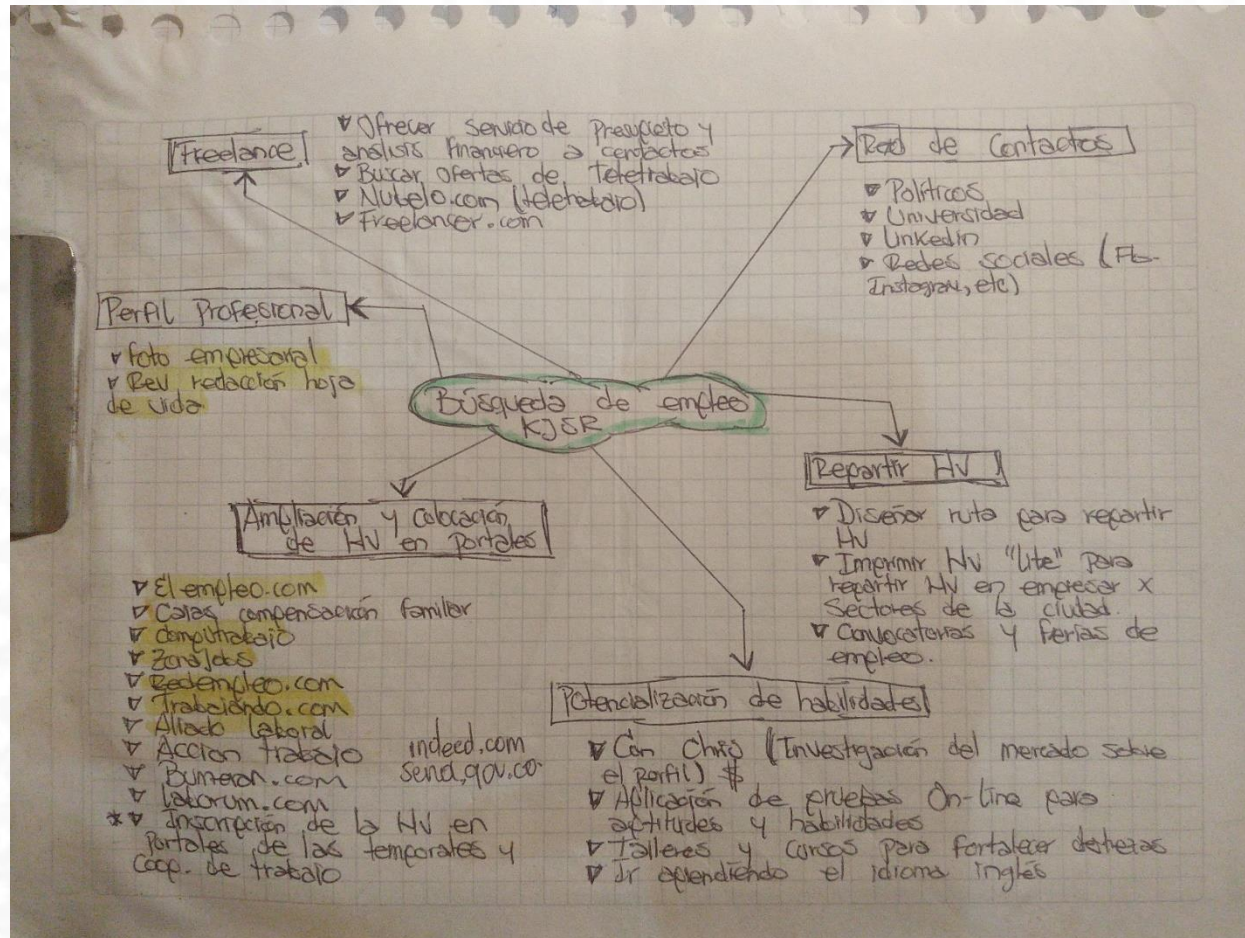 Freelance
Ofrecer servicio de Presupeto y
análisis financiero a contactos
Buscar ofertas de Teletrabajo
Nubelo.com (teletrabajo)
Freelancer.com
Red de Contactos
Políticos
Universidad
Linkedin
Redes sociales (Fb-
Instagram, etc)
Perfil Profesional
foto empresarial
Rev redacción hoja
de vida
Búsqueda de empleo
KJSR
Repartir HV
Diseñar ruta para repartir
HV
Imprimir HV "Lite" para
repartir HV en empresar x
Sectores de la ciudad.
Convocatorias y ferias de
empleo.
Ampliación y colocación
de HV en portales
El empleo.com
Cajas compensación familiar
Computrabajo
ZonaJobs
Redempleo.com
Trabajando.com
Aliado laboral
Accion trabajo
Bumeran.com
Laborum.com
* Inscripción de la HV en
Portales de las temporales y
Coop. de trabajo
indeed.com
sena.gov.co
Potencialización de habilidades
Con Chris (Investigación del mercado sobre
el perfil) $
Aplicación de pruebas On-line para
aptitudes y habilidades
Talleres y cursos para fortalecer destrezas
Ir aprendiendo el idioma inglés